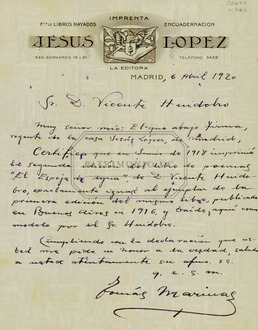 IMPRENTA
Fca DE LIBROS RAYADOS
ENCUADERNACION
JESUS LOPEZ
SAN BERNARDO 19 Y 21
LA EDITORA
TELEFONO 3438
MADRID, 6 Abril 1920
Sr. D. Vicente Huidobro
Muy señor mío: El que abajo firma,
regente de la casa Jesús López, de Madrid,
Certifico que en de 1918 imprimí
la segunda de poemas
"El Espejo de agua" de D. Vicente Huido-
bro, exactamente igual al ejemplar de la
primera edición del mismo libro, publicado
en Buenos Aires en 1916, y traído aquí como
modelo por el Sr. Huidobro.
Cumpliendo con la declaración que us-
ted me pide en honor a la verdad, saluda
a usted atentamente su afmo. ss.
q. e. s. m.
Tomás